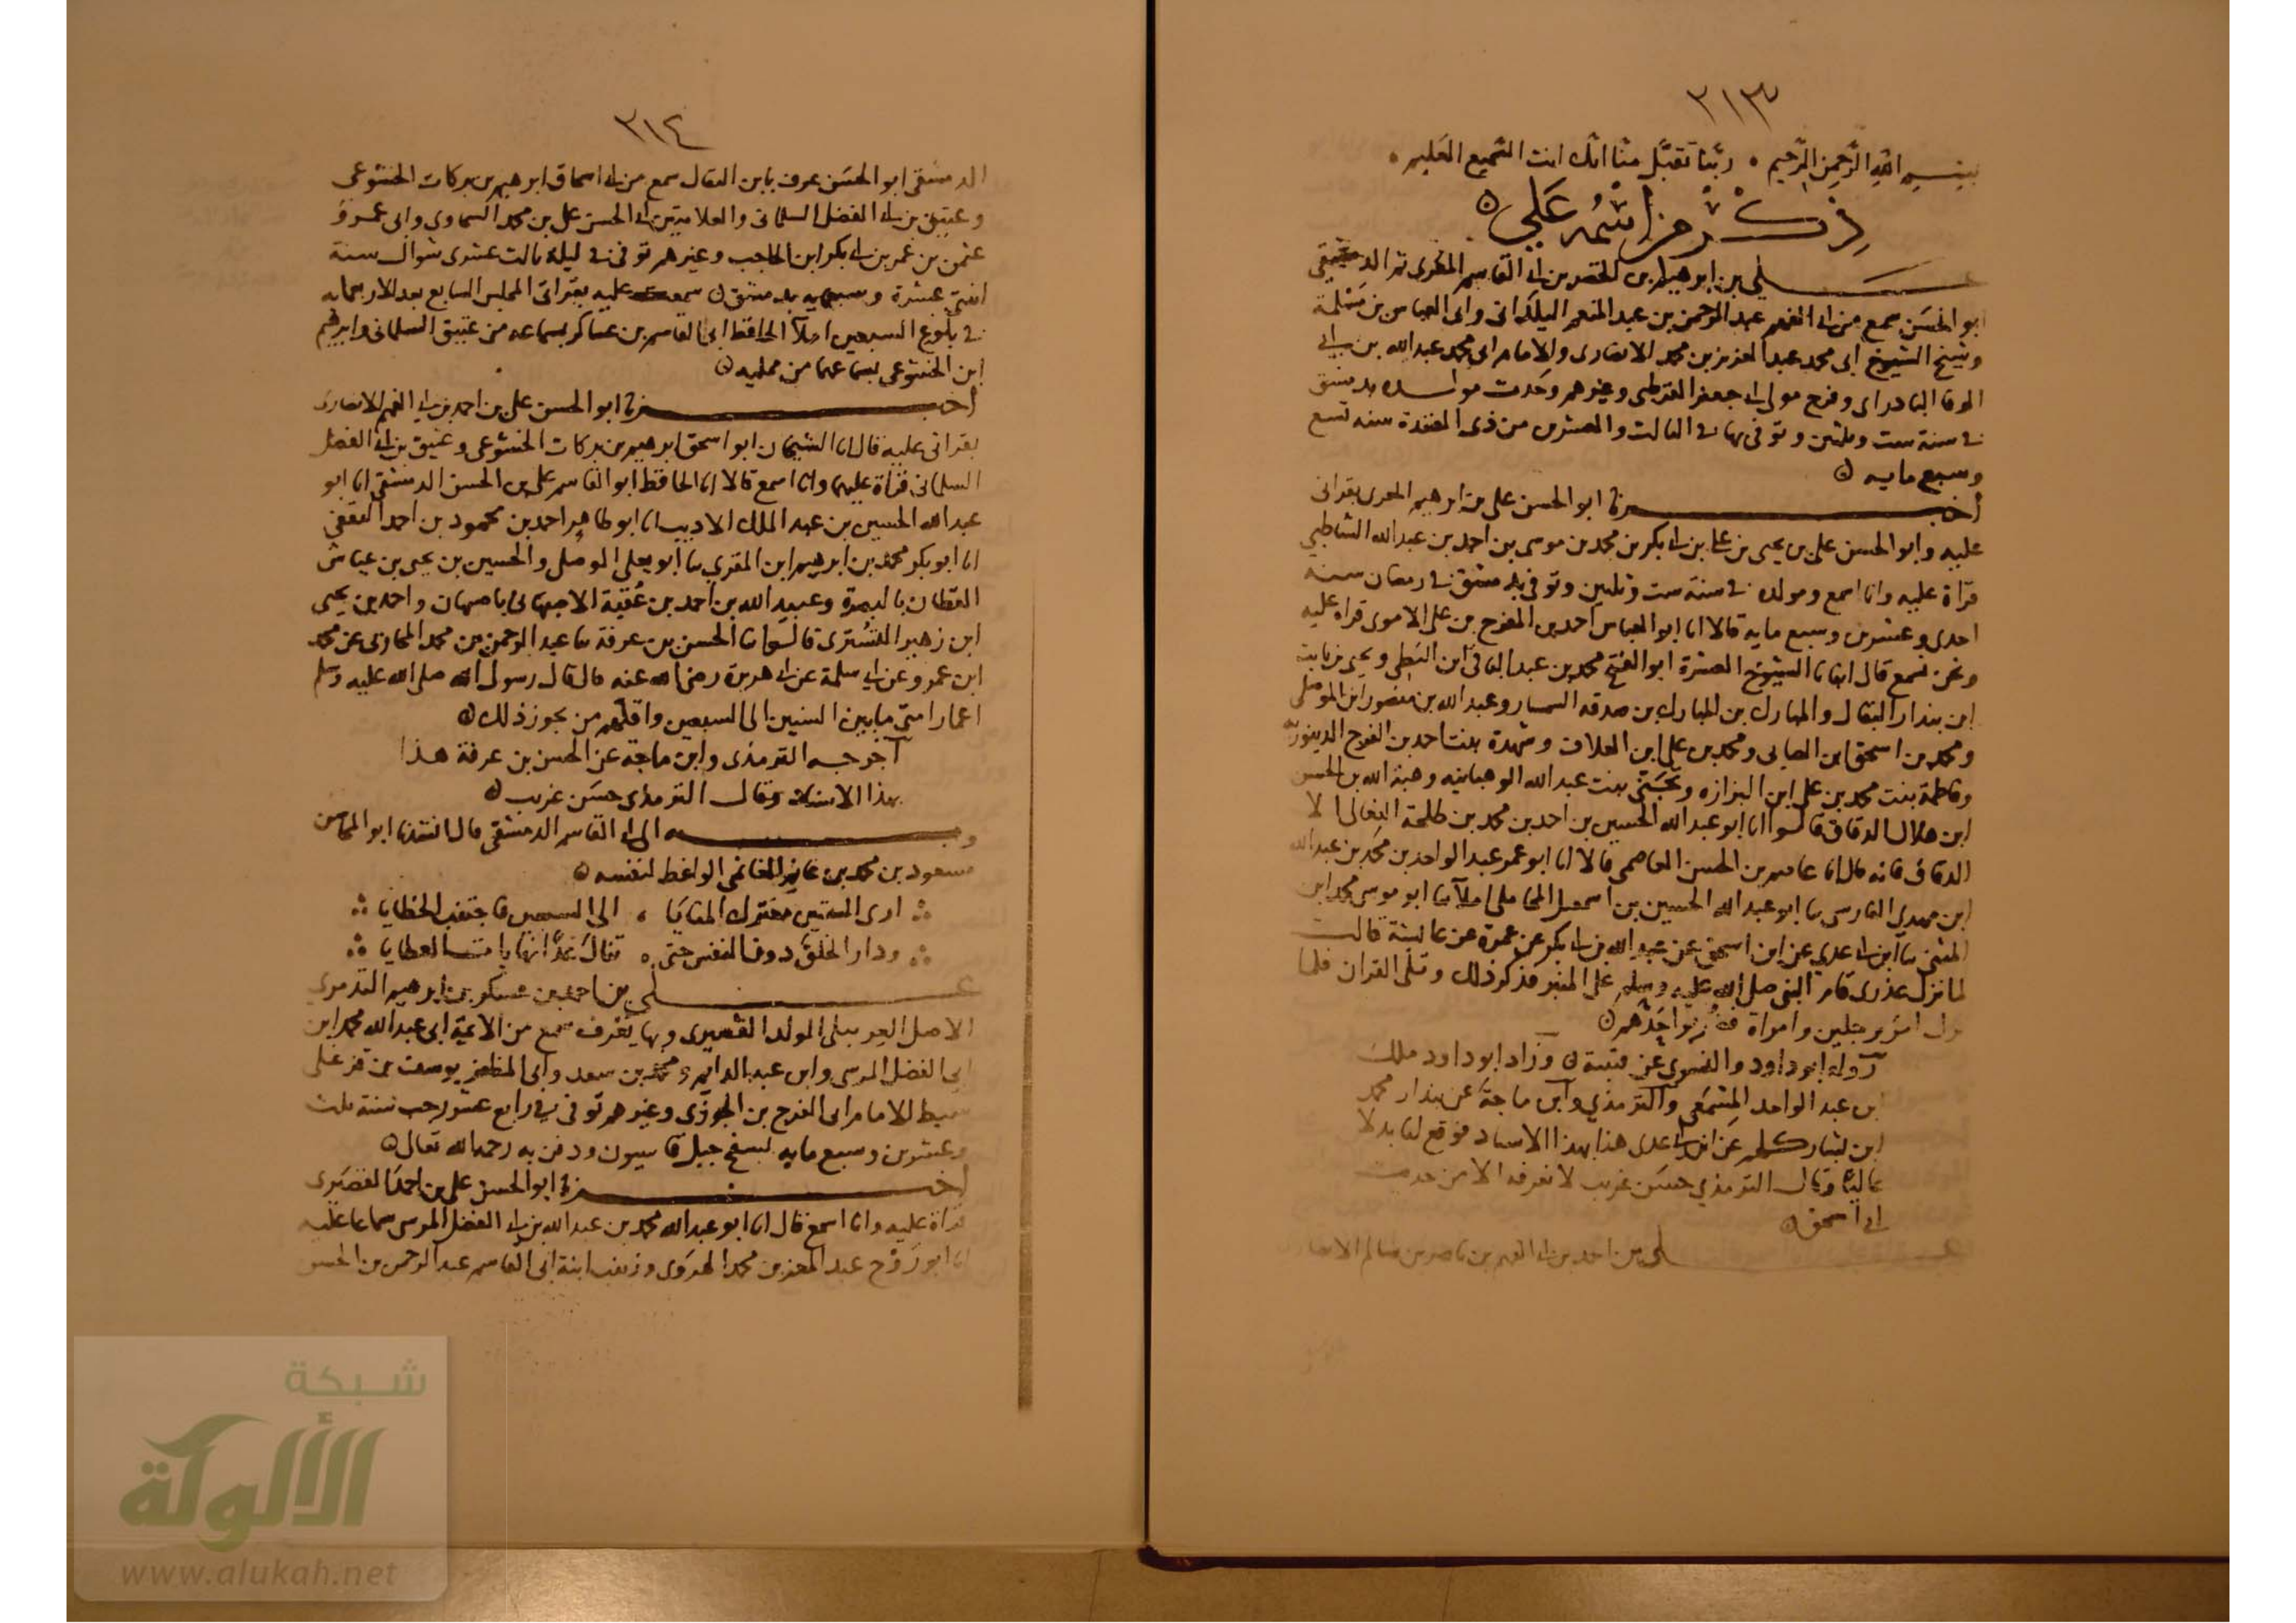 ٣١٣
بسم الله الرحمن الرحيم ٠ ربنا تقبل منا انك انت السميع العليم ٠
ذكر من اسمه علي
علي بن ابرهيم بن الخضر بن ابي القاسم ثم الدمشقي
ابو الحسن سمع من ابي الفهم عبد الرحمن بن عبد المنعم اليلداني وابي العباس بن مسلمة
وشيخ الشيوخ ابي محمد عبد العزيز بن محمد الانصاري والامام ابي محمد عبد الله بن ابي
الوفا البادراى وفرج مولى ابي جعفر القرطبي وغيرهم وحدث مولده بدمشق
في سنة ست وثلثين وتوفي بها في الثالث والعشرين من ذي القعدة سنة تسع
وسبع مايه
أخبرنا ابو الحسن علي بن ابرهيم المقرى بقراتى
عليه وابو الحسن علي بن يحيى بن علي بن ابي بكر بن محمد بن موسى بن احمد بن عبد الله الشاطبي
قراة عليه وانا اسمع ومولده في سنة ست وثلثين وتوفي بدمشق في رمضان سنه
احدى وعشرين وسبع مايه قالا انا ابو العباس احمد بن المفرج بن علي الاموى قراه عليه
ونحن نسمع قال انبانا الشيوخ العشرة ابو الفتح محمد بن عبد الباقي ابن البطي ويحيى بن ثابت
ابن بندار البقال والمبارك بن المبارك بن صدقه السمسار وعبد الله بن منصور ابن الموصلي
ومحمد بن اسحق ابن الصابى ومحمد بن علي ابن العلاف وشهدة بنت احمد بن الفرج الدينوري
وفاطمة بنت محمد بن علي ابن البزازه وتجني بنت عبد الله الوهبانيه وهبة الله بن الحسن
ابن هلال الدقاق قالوا انا ابو عبد الله الحسين بن احمد بن محمد بن طلحة النعالى الا
الدقاق فانه قال انا عاصم بن الحسن العاصمى قالا انا ابو عمر عبد الواحد بن محمد بن عبد الله
ابن مهدي الفارسى نا ابو عبد الله الحسين بن اسمعيل المحاملي املآ نا ابو موسى محمد ابن
المثنى نا ابن ابي عدي عن ابن اسحق عن عبد الله بن ابي بكر عن عمرة عن عائشة قالت
لما نزل عذرى قام النبي صلى الله عليه وسلم على المنبر فذكر ذلك وتلى القران فلما
نزل امر برجلين وامراة حدهم
رواه ابو داود عن قتيبة وزاد ابو داود ملك
ابن عبد الواحد المسمعي والترمذي وابن ماجة عن بندار محمد
ابن بشار كلهم عن ابن ابي عدى هذا بهذا الاسناد فوقع لنا بدلا
عاليا وقال الترمذي حسن غريب لا نعرفه الا من حديث
ابن اسحق
علي بن احمد بن ابي الفهم بن ناصر بن سالم الانصارى
٣١٤
الدمشقى ابو الحسن عرف بابن البقال سمع من ابي اسحاق ابرهيم بن بركات الخشوعى
وعتيق بن ابي الفضل السلمانى والعلامتين ابي الحسن علي بن محمد السخاوى وابى عمرو
عثمن بن عمر بن ابي بكر ابن الحاجب وغيرهم توفي في ليلة ثالث عشرى شوال سنة
اثنتى عشرة وسبعمايه بدمشق سمعت عليه بقراتى المجلس السابع بعد الاربعمايه
في بلوغ السبعين املآ الحافظ ابى القاسم بن عساكر بسماعه من عتيق السلمانى وابرهيم
ابن الخشوعى بسماعهما من ممليه
أخبرنا ابو الحسن علي بن احمد بن ابي الفهم الانصارى
بقراتى عليه قال انا الشيخان ابو اسحق ابرهيم بن بركات الخشوعى وعتيق بن ابي الفضل
السلمانى قراة عليهما وانا اسمع قالا انا الحافظ ابو القاسم علي بن الحسن الدمشقى انا ابو
عبد الله الحسين بن عبد الملك الاديب انا ابو طاهر احمد بن محمود بن احمد الثقفي
انا ابو بكر محمد بن ابرهيم ابن المقري نا ابو يعلى الموصلي والحسين بن يحيى بن عياش
القطان بالبصرة وعبيد الله بن احمد بن عقبة الاصبهانى باصبهان واحمد بن يحيى
ابن زهير التسترى قالوا نا الحسن بن عرفة نا عبد الرحمن بن محمد المحاربى عن محمد
ابن عمرو عن ابي سلمة عن ابي هريرة رضي الله عنه قال قال رسول الله صلى الله عليه وسلم
اعمار امتي ما بين الستين الى السبعين واقلهم من يجوز ذلك
اخرجه الترمذى وابن ماجة عن الحسن بن عرفة هذا
بهذا الاسناد وقال الترمذي حسن غريب
وبه الى ابي القاسم الدمشقى قال انشدنا ابو المحاسن
مسعود بن محمد بن غانم الغانمي الواعظ لنفسه
ارى الستين معترك المنايا ، الى السبعين فاجتنب الخطايا
ودار الخلق دون النفس حتى ، تنال العطايا
علي بن احمد بن عسكر بن ابرهيم التدمري
الاصل العربيلى المولد القصيرى وبها يعرف سمع من الائمة ابى عبد الله محمد ابن
ابى الفضل المرسى وابن عبد الدايم ومحمد بن سعد وابى المظفر يوسف بن قزغلى
سبط الامام ابى الفرج بن الجوزى وغيرهم توفي في رابع عشر رجب سنة ثلث
وعشرين وسبع مايه بسفح جبل قاسيون ودفن به رحمه الله تعالى
أخبرنا ابو الحسن علي بن احمد القصيرى
قراة عليه وانا اسمع قال انا ابو عبد الله محمد بن عبد الله بن ابي الفضل المرسى سماعا عليه
انا ابو روح عبد المعز بن محمد الهروى وزينب ابنة ابى القاسم عبد الرحمن بن الحسن
شبكة
الألوكة
www.alukah.net